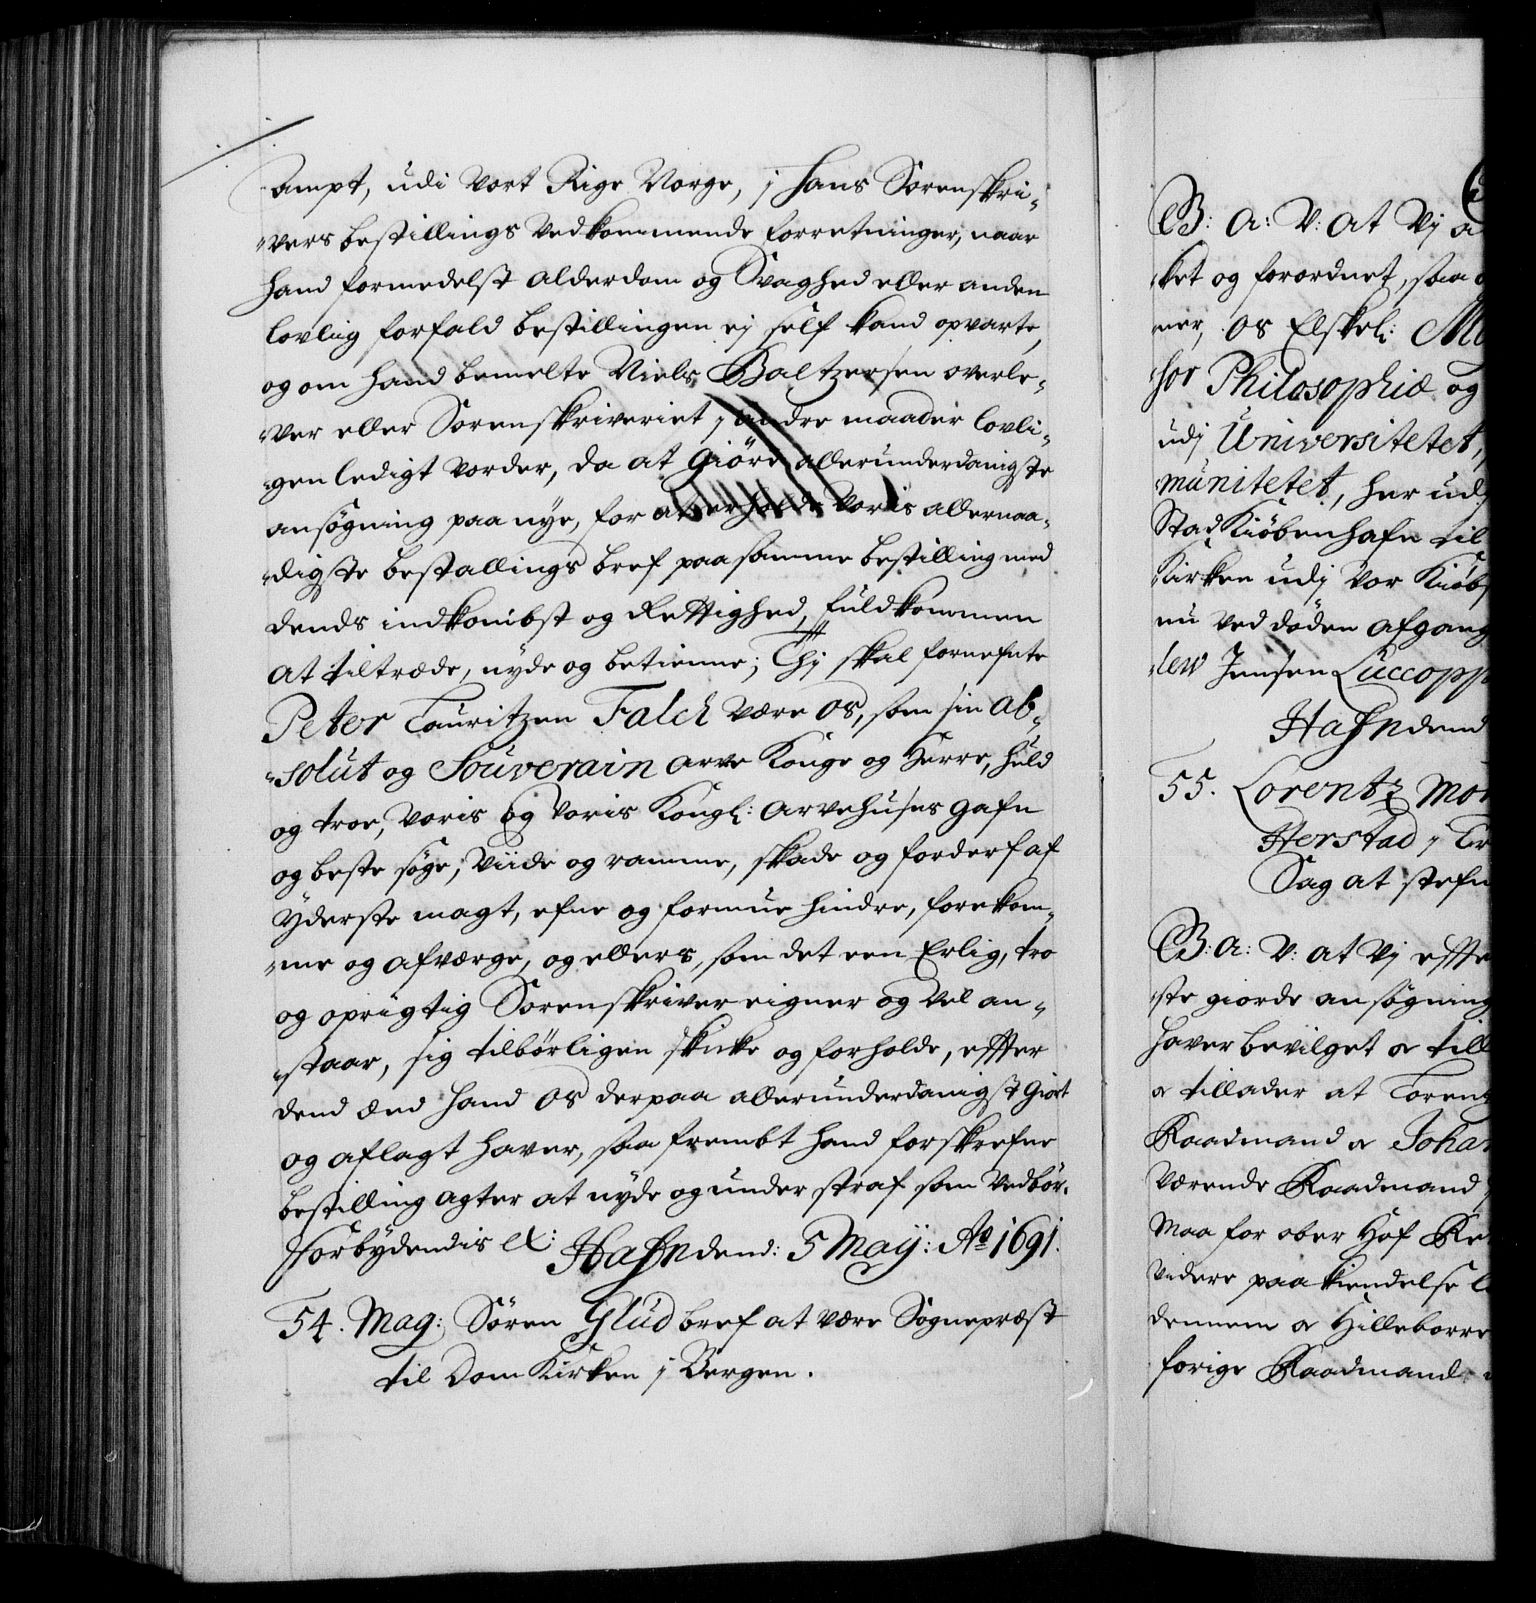 Ampt, udi vort Rige Norge, j hans Sorenskri-
vers bestillings vedkommende forretninger, naar
hand formedelst alderdom og Svaghed eller anden
lovlig forfald bestillingen ej self kand opvarte,
og om hand bemelte Niels Baltzersen overle-
ver eller Sorenskriveriet j andre maader lovli-
gen ledigt vorder, da at giöre allerunderdanigste
ansøgning paa nye, for at erholde voris allernaa-
digste bestallings bref paa samme bestilling med
dends indkombst og Rettighed, fuldkommen
at tiltræde, nyde og betienne; Thj skal fornefnte
Peter Lauritzen Falch være os, som sin ab-
solut og Souverain arve Konge og Herre, huld
og troe, voris og voris Kongl: arvehuses gafn
og beste søge, viide og ramme, skade og forderf af
yderste magt, efne og formue hindre, forekom-
me og afværge, og ellers, som det een Erlig, tro
og oprigtig Sorenskriver eigner og vel an-
staar, sig tilbørligen skicke og forholde, effter
dend Æed hand os derpaa allerunderdanigst giort
og aflagt haver, saa frembt hand forskrefne
bestilling agter at nyde og under straf som vedbør.
Forbydendis etc: Hafn dend: 5 Maij: Ao 1691.
54. Mag: Søren Glud bref at være Sognepræst
til Dom Kirken j Bergen.
B: A: V: at Vj
ket og forordnet, saa
ner, os Elskel:
sor Philosophiæ og
udj Universitetet,
munitetet, her udj
Stad Kiöbenhafn til
Kirken udj vor Kiöb
nu ved døden afgang
lew Jensen Luccopp
Hafn dend
55. Lorentz Mor
Herstad j
Sag at stefn
B: A: V: at Vj effte
ste giorde ansøgning
haver bevilget og till
og tillader at Lorentz
Raadmand og Johan
værende Raadmand
maa for ober Hof Ret
videre paakiendelse
dennem og Hilleborre
forige Raadmand